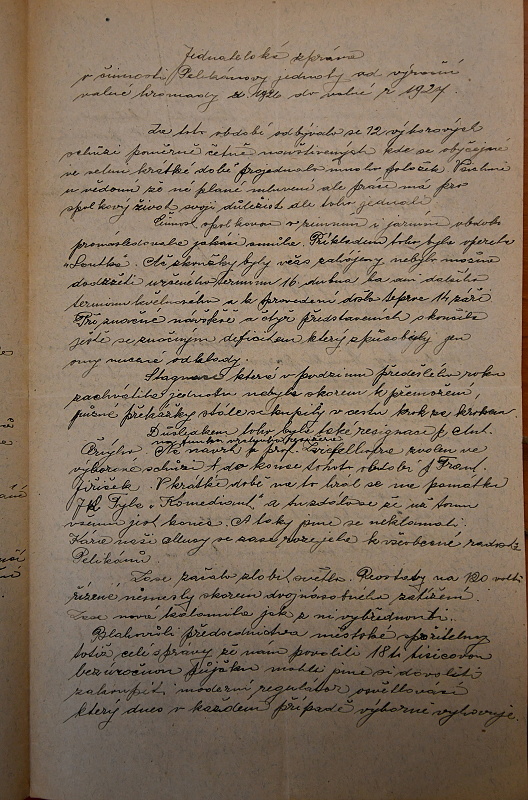 Jednatelská zpráva
o činnosti Pelikánovy jednoty od výroční
valné hromady r. 1926 do valné r 1927.
Za toto období odbývalo se 12 výborových
schůzí poměrně četně navštívených kde se obyčejně
ve velmi krátké době projednalo mnoho položek
u vědomí že ne plané mluvení ale práce má pro
spolkový život svoji důležitost ale toho jednali
Činnost spolkovou v zimním i jarním období
pronásledovala jakási smůla. Příkladem toho byla opereta
„Loutka“. Ač zkoušky byly včas zahájeny, nebylo možno
dodržeti určeného termínu 16. dubna ba ani dalšího
termínu květnového a k provedení došlo teprve 14. září
Při značné námaze a čtyř představeních skončila
jistě se značným deficitem který způsobily jen
ony nucené odklady.
Stagnace která v podzimu předešlého roku
zachvátila jednotu nebyla skorem k přemožení,
různé překážky stále se kupily v cestu krok za krokem.
Důsledkem toho byla také resignace p. Ant.
na funkci
Na návrh p. prof. zvolen ve
výborové schůzi do konce tohoto období p. Frant.
Jiříček. V krátké době na to hrál se na památku
J.K. Tyla „Komediant“ a zase už tomu
všemu jest konec. A taky jsme se neklamali.
Kára naší Musy se zase rozejela k všeobecné radosti
Pelikánů.
Zase začalo zlobit světlo. Reostaty na 120 voltů
řízené nesnesly skorem dvojnásobného zatížení.
Zase nová jak z ní vybřednouti.
Blahovůlí předsednictva městské spořitelny
totiž celé správy že nám povolili 18ti tisícovou
bezúročnou půjčku mohli jsme si dovoliti
zakoupiti moderní regulátor osvětlování
který dnes v každém případě výborně vyhovuje.